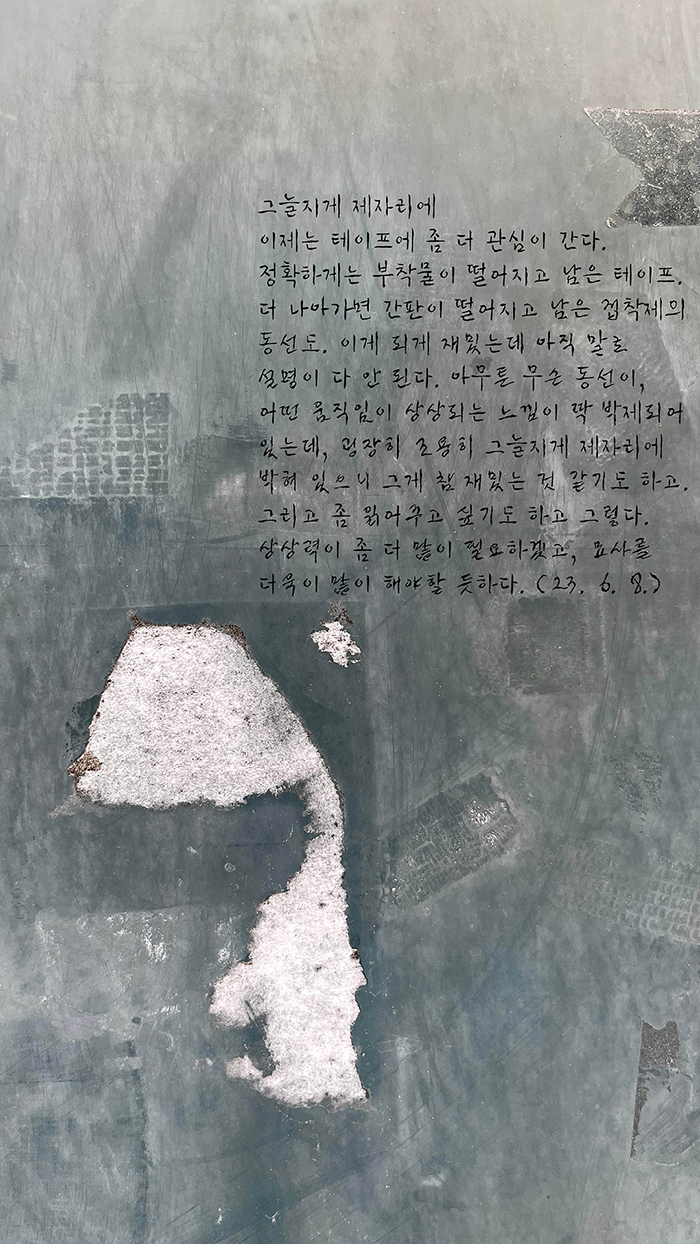 그늘지게 제자리에
이제는 테이프에 좀 더 관심이 간다.
정확하게는 부착물이 떨어지고 남은 테이프.
더 나아가면 간판이 떨어지고 남은 접착제의
동선도. 이게 되게 재밌는데 아직 말로
설명이 다 안 된다. 아무튼 무슨 동선이,
어떤 움직임이 상상되는 느낌이 딱 박제되어
있는데, 굉장히 조용히 그늘지게 제자리에
박혀 있으니 그게 참 재밌는 것 같기도 하고.
그리고 좀 읽어주고 싶기도 하고 그렇다.
상상력이 좀 더 많이 필요하겠고, 묘사를
더욱이 많이 해야할 듯하다. (23. 6. 8.)